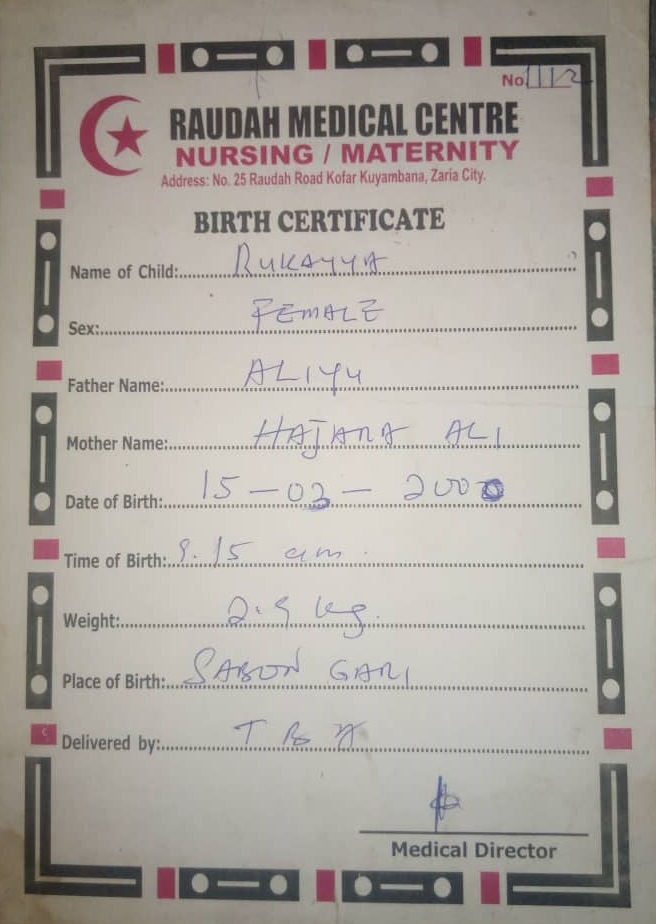 No. 1112
RAUDAH MEDICAL CENTRE
NURSING / MATERNITY
Address: No. 25 Raudah Road Kofar Kuyambana, Zaria City.
BIRTH CERTIFICATE
Name of Child: RUKAYYA
Sex: FEMALE
Father Name: ALIYU
Mother Name: HAJARA ALI
Date of Birth: 15-03-2000
Time of Birth: 9.15 am.
Weight: 2.9 kg.
Place of Birth: SABON GARI
Delivered by: T B A
Medical Director